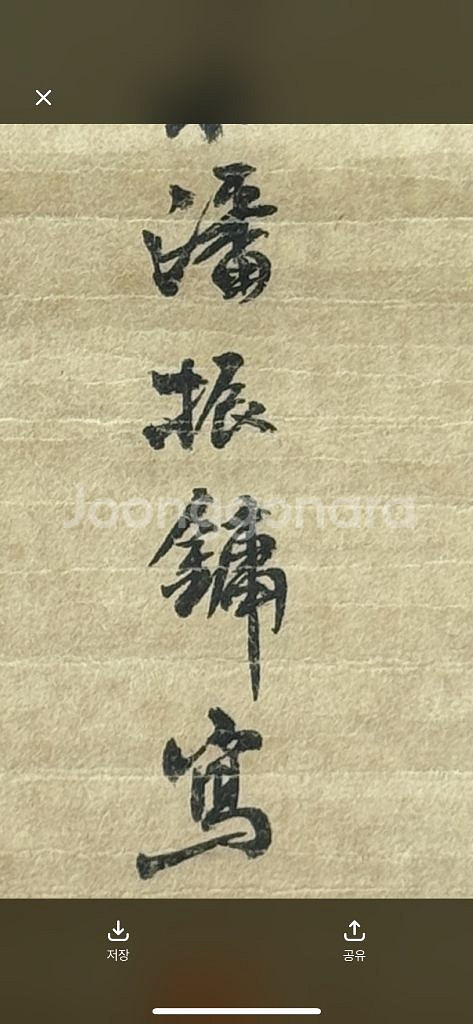 潘振鏞寫
Joonggonara
저장
공유